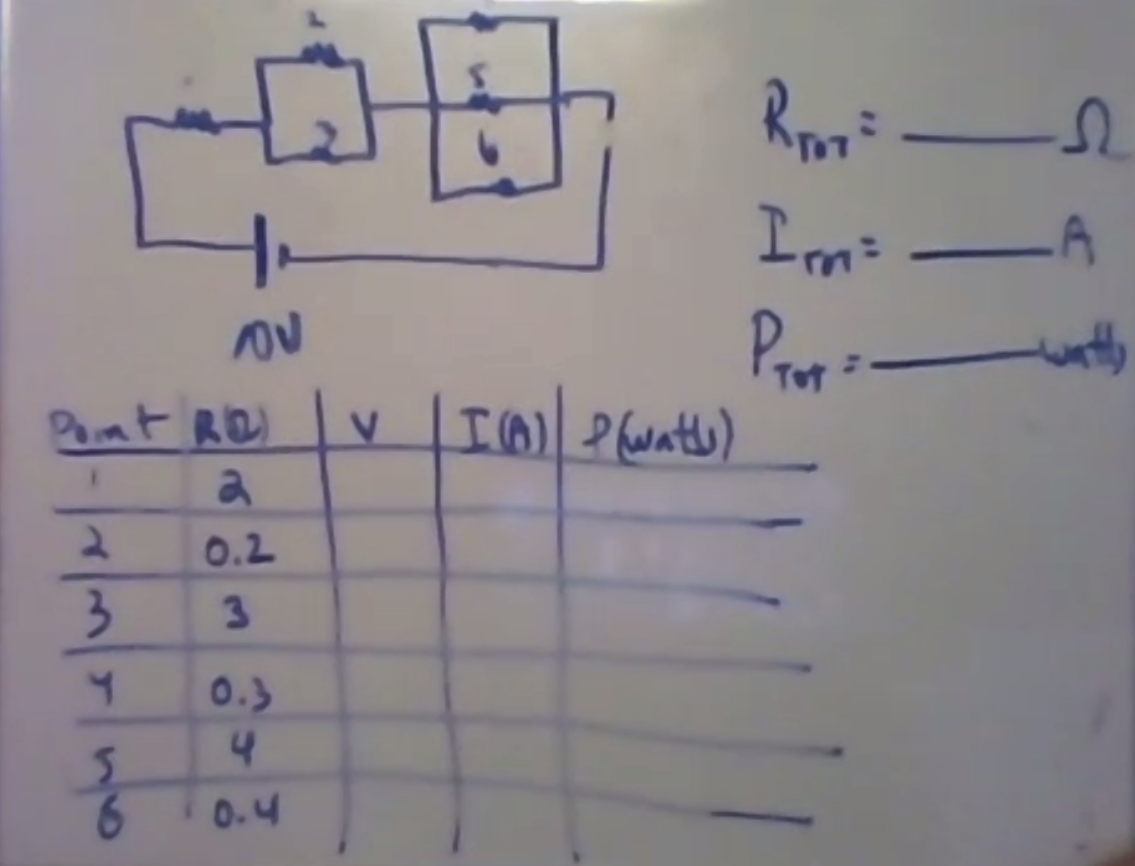 2
5
3
6
10V
R TOT = ____ Ω
I TOT = ____ A
P TOT = ____ watts
Point R(Ω) V I(A) P(watts)
1 2
2 0.2
3 3
4 0.3
5 4
6 0.4